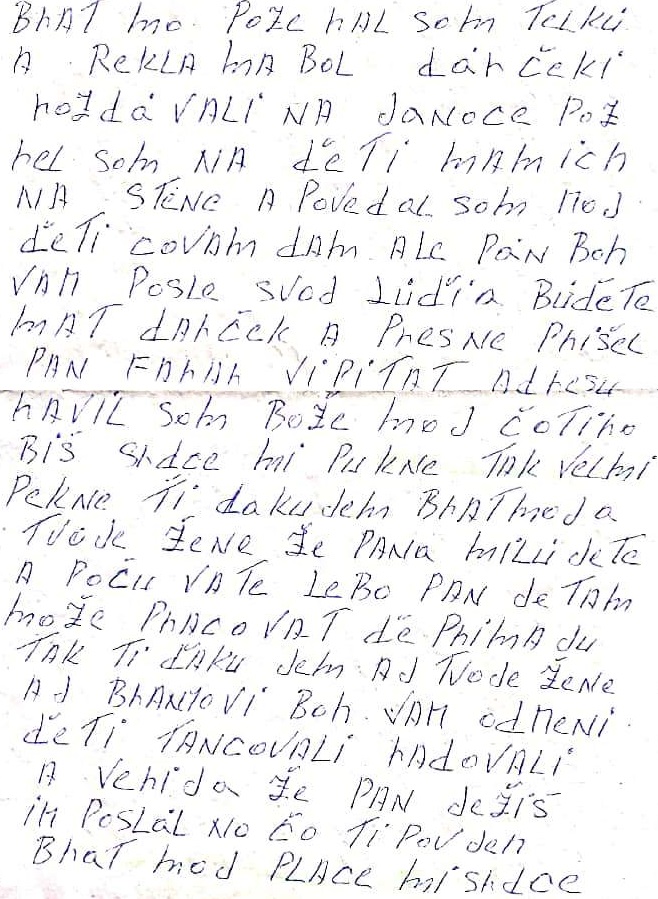 BrAT mo. PoZe rAL som TeLKú
A ReKLA mA BoL dárČeKi
roŽdá VALi NA JANoce PoZ
rel som NA ďeTi mAmich
NA STĚNe A PoVedal som moJ
ďeTi coVAm dAm ALe PáN Boh
VAM PosLe svoJ Lúďia BúďeTe
mAT dArČeK A PresNe PrišeL
PAN FArAr ViPiTAT Adresu
rAViL som BoŽe moJ čoTiho
BiŠ srdce mi PuKNe TAK VeLmi
PeKNe Ti ďaKuJem BrATmoJ a
TVoJe ŽeNe Že PANa miLuJeTe
A PoČu VATe LeBo PAN JeTAm
moŽe PrAcoVAT ďe PrimAJu
TAK Ti ĎAKu Jem AJ TVoJe ŽeNe
AJ BrANYoVi Boh VAM odmeNi.
ďeTi TANcoVALi rAdoVALi
A VeriJa Že PAN JeŽiŠ
im PosLaL No Čo Ti PoVJem
BraT moJ PLAČe mi srdce